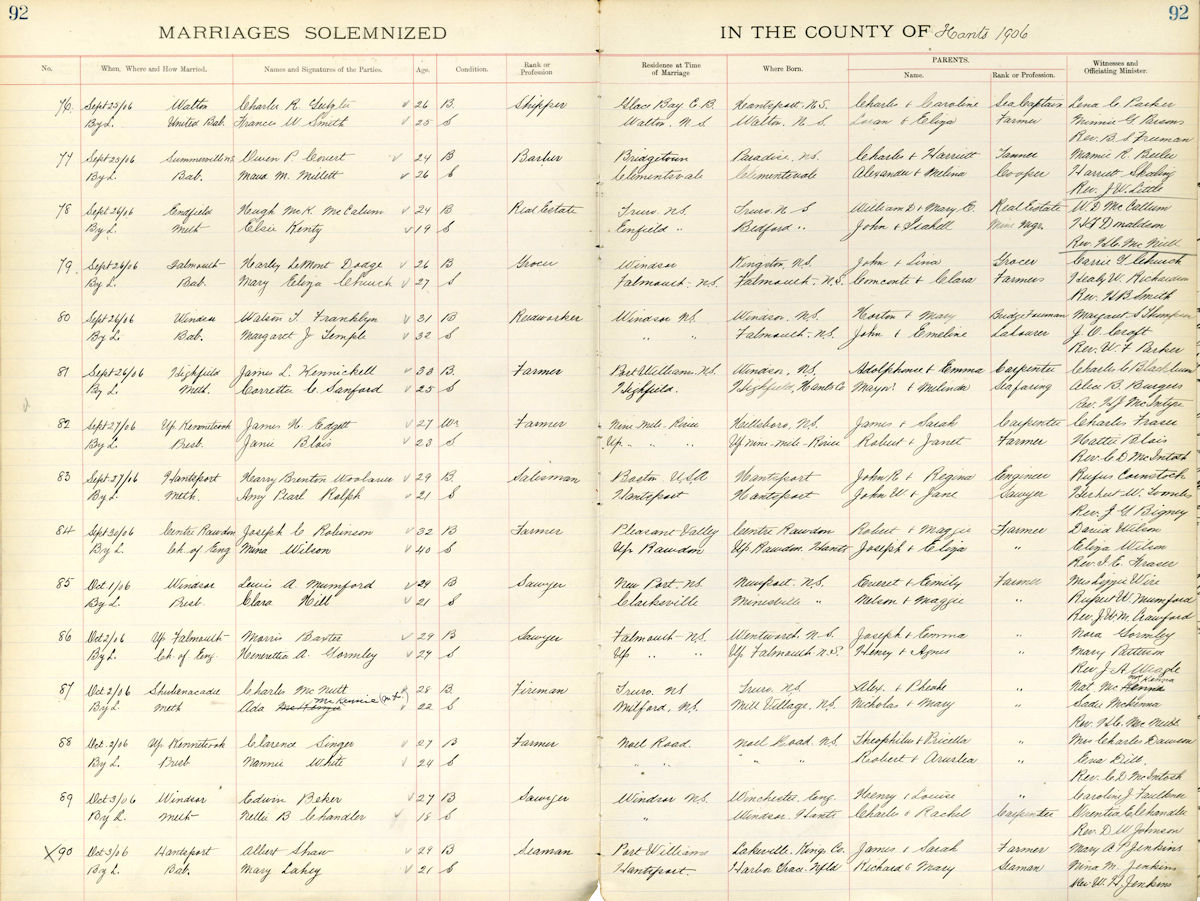 92
92
MARRIAGES SOLEMNIZED IN THE COUNTY OF Hants 1906
PARENTS.
No. When, Where and How Married. Names and Signatures of the Parties. Age. Condition. Rank or Profession Residence at Time of Marriage Where Born. Name. Rank or Profession. Witnesses and Officiating Minister.
76 Sept 23/06 Walton Charles R. 26 B. Skipper Glace Bay C B Hantsport N.S. Charles & Caroline Sea Captain Lena C Parker
By L. United Bab. Frances W Smith 25 S Walton, N S Walton, N S & Eliza Farmer Minnie G Parsons
Rev. B S Freeman
77 Sept 25/06 Owen P Covert 24 B Barber Bridgetown Paradise, N.S. Charles & Harriett Mamie R.
By L. Bab. Maud M. Millett 26 S Clementsvale Clementsvale Alexander & Melina Cooper Harriet
Rev. J W Little
78 Sept 26/06 Enfield Hugh McK. McCalum 24 B Real Estate Truro, N.S. Truro. N S William D & Mary E. Real Estate W. D McCallum
By L. Meth Elsie Kenty 19 S Enfield " Bedford " John & Isabell Mine Mgr. Donaldson
Rev.
79 Sept 26/06 Falmouth Harley LeMont Dodge 26 B Grocer Windsor Kingston, N.S. John & Lina Grocer Carrie Church
By L. Bab. Mary Eliza Church 27 S Falmouth N.S. Falmouth N.S. & Clara Farmers Healy W. Richardson
Rev. H B Smith
80 Sept 26/06 Windsor Watson T. Franklyn 31 B Windsor N.S. Windsor, N.S. Horton & Mary Margaret S Thompson
By L. Bab. Margaret J Temple 32 S " " Falmouth, N.S. John & Emeline Labourer J. Croft
Rev. W. F Parker
81 Sept 26/06 Highfield James L. Hennickell 30 B. Farmer Port Williams, N.S. Windsor, N.S. Adolphouse & Emma Carpenter Charles C Blackburn
By L. Meth. Corretta C Sanford 25 S Highfield. Highfield, Hants Co & Melinda Sea faring Alice B. Burgess
Rev. McIntyre
82 Sept 27/06 Up. Kennetcook James H. Edgett 27 Wr Farmer Nine mile River Hillsboro, N.S. James & Sarah Carpenter Charles Fraser
By L. Presb. Janie Blois 23 S Up. " " " Up nine mile River Robert & Janet Farmer Hattie Blois
Rev. C D McIntosh
83 Sept 27/06 Hantsport Harry Brenton Woolaver 29 B. Salesman Boston U.S.A Hantsport John R & Regina Engineer Rufus Comstock
By L. Meth. Amy Pearl Rolph 21 S Hantsport Hantsport John W & Jane Sawyer Herbert W.
Rev. J G Bigney
84 Sept 30/06 Centre Rawdon Joseph C Robinson 32 B Farmer Pleasant Valley Centre Rawdon Robert & Maggie Farmer Wilson
By L. Ch. of Eng Mina Wilson 40 S Up. Rawdon Up Rawdon, Hants Joseph & Eliza " Eliza Wilson
Rev. Fraser
85 Oct 1/06 Windsor Lewis A. Mumford 24 B Sawyer New Port N.S. Newport. N.S. Everet & Emily Farmer Mrs Lizzie Wire
By L. Presb. Clara Hill 21 S Clarksville Minesville " Nelson & Maggie " Rupert W. Mumford
Rev. J. W. M. Crawford
86 Oct 2/06 Up Falmouth Morris Baxter 29 B Sawyer Falmouth N.S. Wentworth, N.S. Joseph & Emma " Nora Gormley
By L. Ch of Eng. Heneretta A. Gormley 24 S Up " " Up Falmouth N.S. Henry & Agnes " Mary Patterson
Rev. J A
87 Oct 2/06 Shubenacadie Charles McNutt 28 B. Fireman Truro. N.S. Truro. N.S. Alex. & Phoebe " Nat McKenna
By L. Meth Ada McKennie 22 S Milford, N.S. Mill Village, N.S. Nicholas & Mary " Sadie McKenna
Rev.
88 Oct. 2/06 Up Kennetcook Clarence Singer 27 B Farmer Noel Road. Noel Road. N.S. Theophilus & Pricella " Mrs Charles Dawson
By L. Presb. Nannie White 24 S " " " " Robert & " Eva Dill.
Rev. C D McIntosh
89 Oct 3/06 Windsor Edwin Beker 27 B Sawyer Windsor N.S. Winchester, Eng. Henry & Louise " Caroline J Faulkner
By L. Meth Nellie B Chandler 18 S " Windsor Hants Charles & Rachel Carpenter Chandler
Rev. D W Johnson
X90 Oct 3/06 Hantsport Albert Shaw 29 B Seaman Port Williams Lakeville, Kings Co. James & Sarah Farmer Mary A P Jenkins
By L. Bab. Mary Lahey 21 S Hantsport. Harbor Grace. Nfld Richard & Mary Seaman Nina M. Jenkins
Rev. W. H. Jenkins